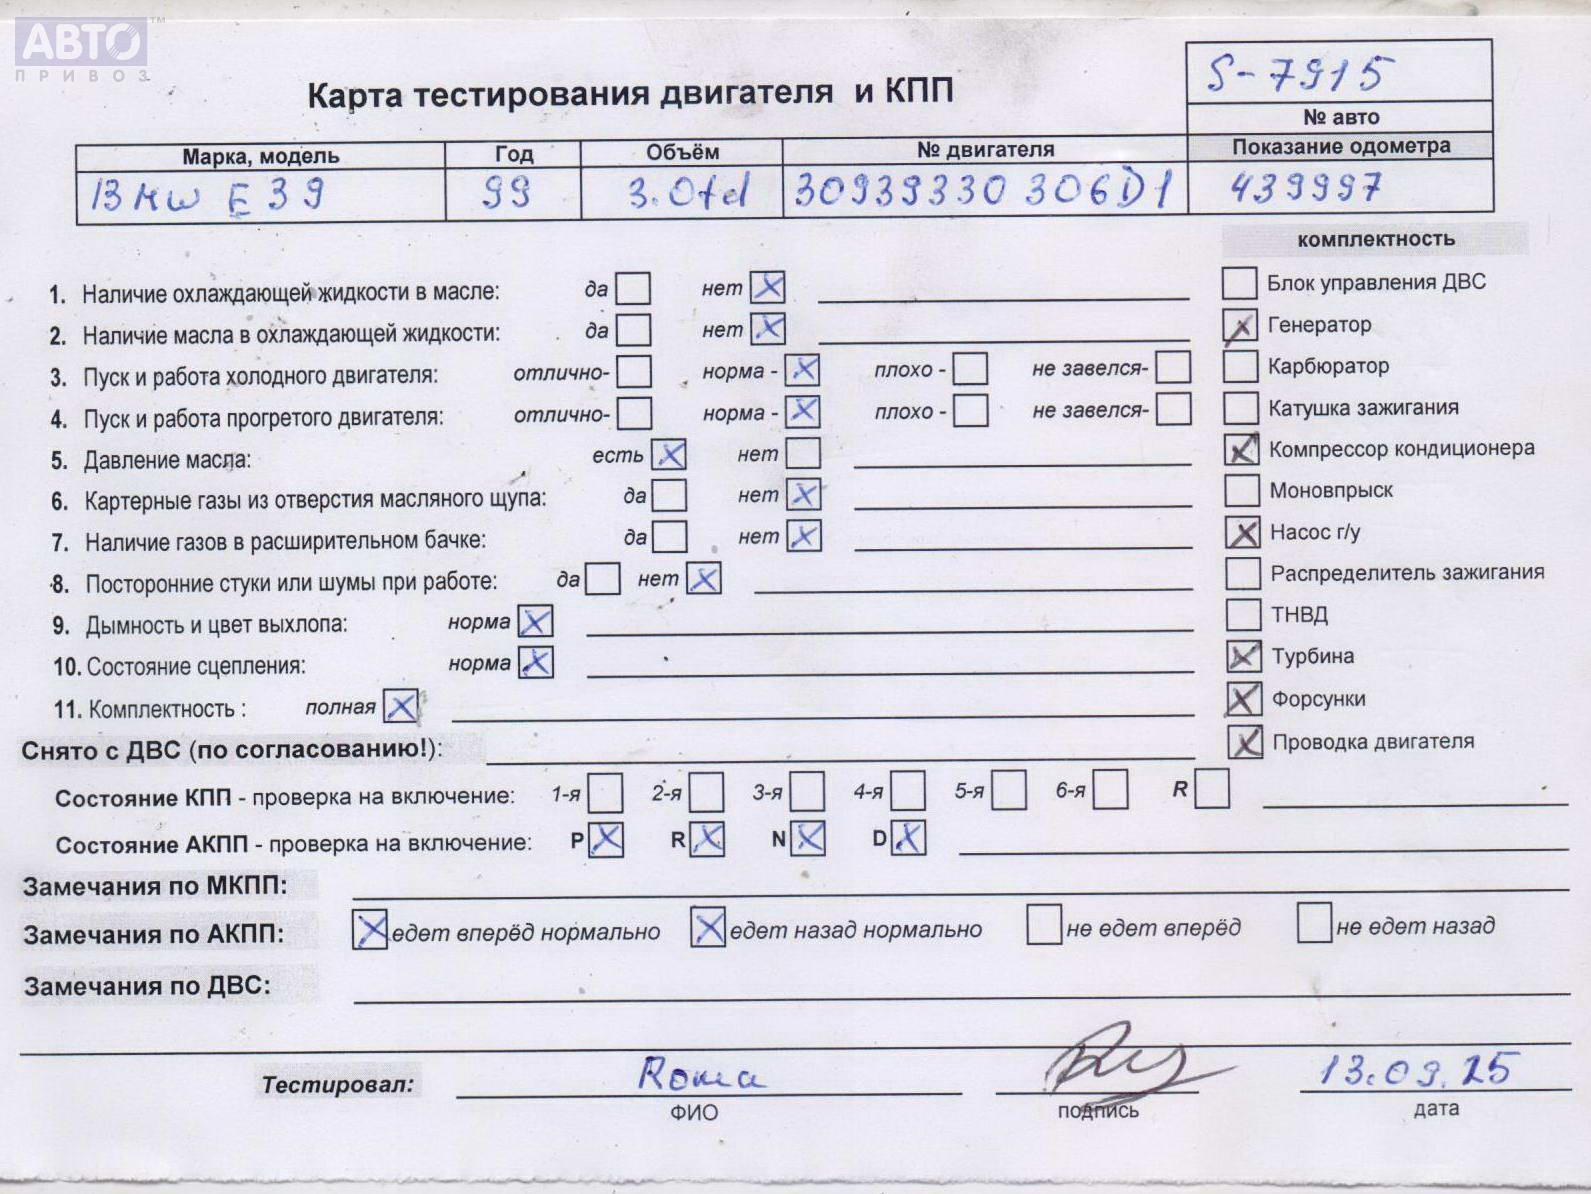 АВТО™
ПРИВОЗ
S-7915
Карта тестирования двигателя и КПП
№ авто
Марка, модель Год Объём № двигателя Показание одометра
BMW E39 99 3.0td 30939330 306D1 439997
комплектность
1. Наличие охлаждающей жидкости в масле: да нет X
Блок управления ДВС
2. Наличие масла в охлаждающей жидкости: да нет X
X Генератор
3. Пуск и работа холодного двигателя: отлично- норма - X плохо - не завелся-
Карбюратор
4. Пуск и работа прогретого двигателя: отлично- норма - X плохо - не завелся-
Катушка зажигания
5. Давление масла: есть X нет
X Компрессор кондиционера
6. Картерные газы из отверстия масляного щупа: да нет X
Моновпрыск
7. Наличие газов в расширительном бачке: да нет X
X Насос г/у
8. Посторонние стуки или шумы при работе: да нет X
Распределитель зажигания
9. Дымность и цвет выхлопа: норма X
ТНВД
10. Состояние сцепления: норма X
X Турбина
11. Комплектность : полная X
X Форсунки
Снято с ДВС (по согласованию!):
X Проводка двигателя
Состояние КПП - проверка на включение: 1-я 2-я 3-я 4-я 5-я 6-я R
Состояние АКПП - проверка на включение: P X R X N X D X
Замечания по МКПП:
Замечания по АКПП: X едет вперёд нормально X едет назад нормально не едет вперёд не едет назад
Замечания по ДВС:
Тестировал: Roma 13.09.25
ФИО подпись дата